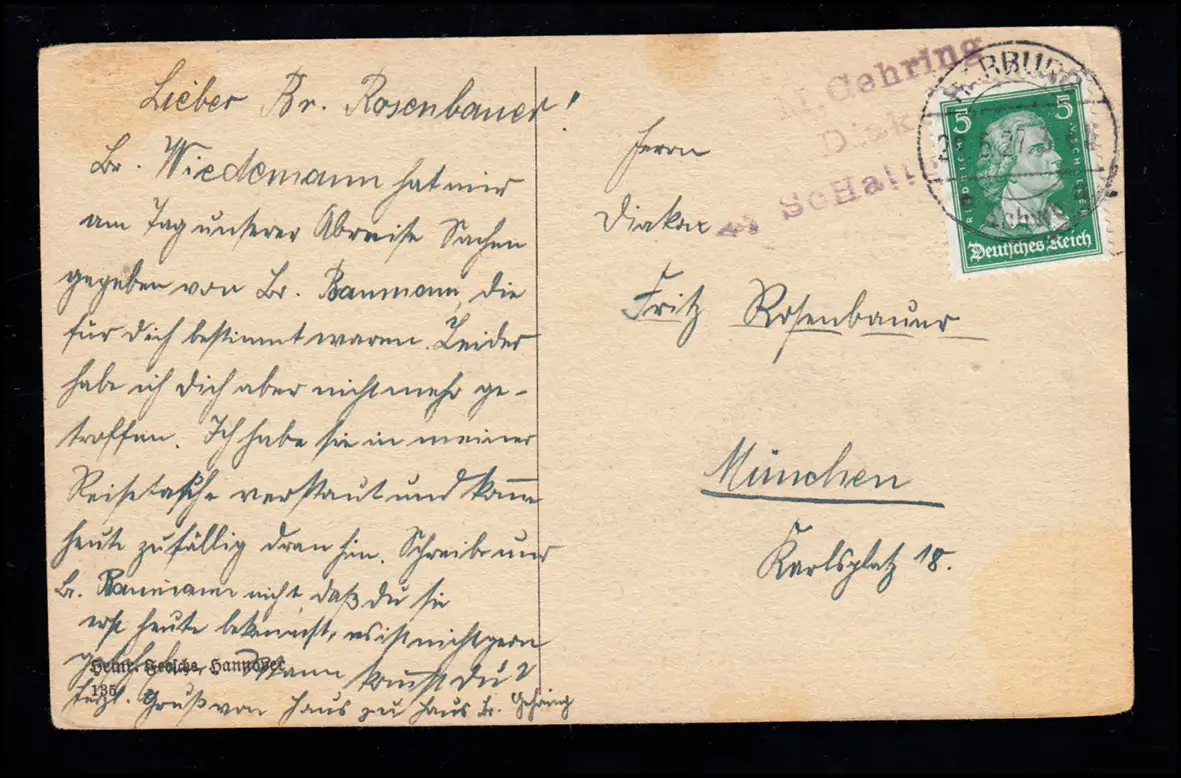 Lieber Br. Rosenbauer!
Br. Wiedemann hat mir
am Tag unserer Abreise Sachen
gegeben von Br. Baumann, die
für Dich bestimmt waren. Leider
habe ich Dich aber nicht mehr ge-
troffen. Ich habe sie in meiner
Reisetasche verstaut und komme
heute zufällig dran hin. Schreibe nur
Br. Baumann nicht, daß Du sie
erst heute bekommst, es ist nicht gern
Wann kommst Du?
herzl. Gruß von Haus zu Haus Br. Gehring
Heinr. Hannover
135
M. Gehring
Diak
Schall
HARBURG
5 5
FRIEDRICH V. SCHILLER
Deutsches Reich
Herrn
Diakon
Fritz Rosenbauer
München
Karlsplatz 18.